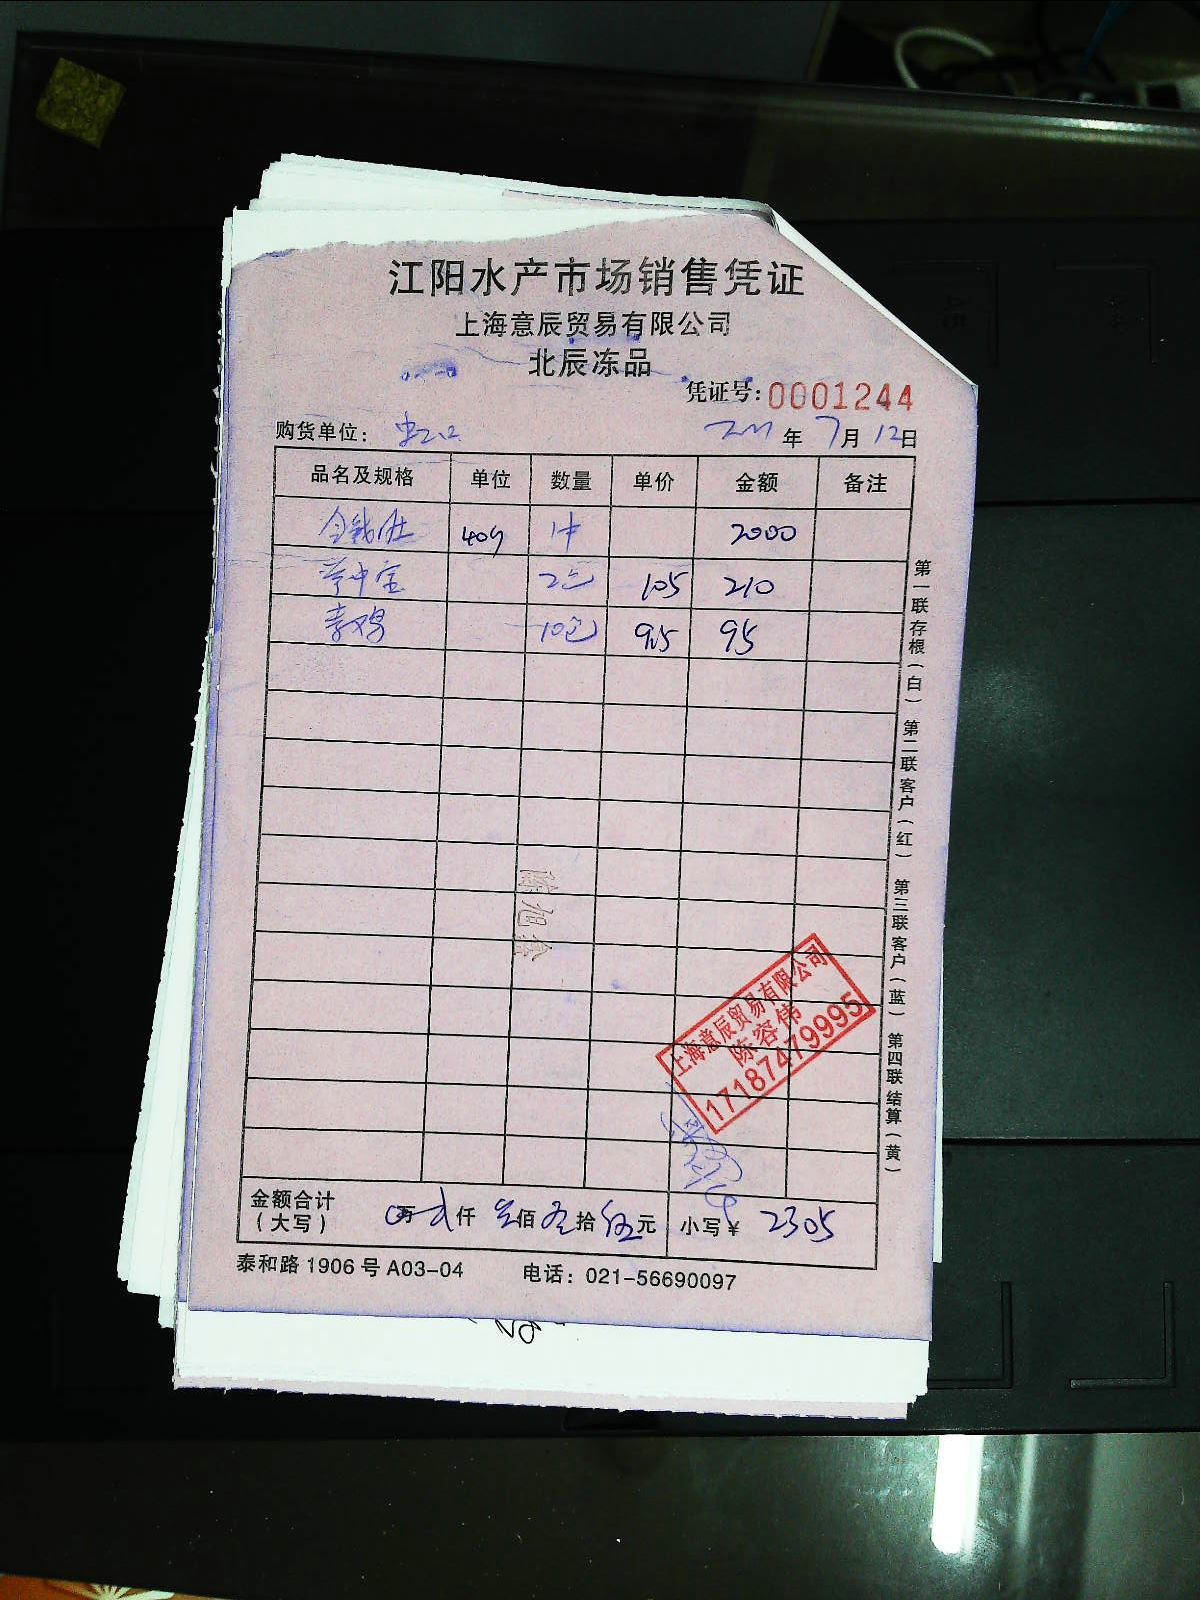 江阳水产市场销售凭证
上海意辰贸易有限公司
北辰冻品
凭证号:0001244
购货单位: 虹口 年 7月 12日
品名及规格 单位 数量 单价 金额 备注
金钱肚 1件 2000
2包 105 210
素鸡 10包 9.5 95
第一联存根(白) 第二联客户(红) 第三联客户(蓝) 第四联结算(黄)
上海意辰贸易有限公司
陈容伟
17187479995
金额合计
(大写) 万 仟 佰 拾 伍元 小写¥ 2305
泰和路 1906 号 A03-04 电话: 021-56690097